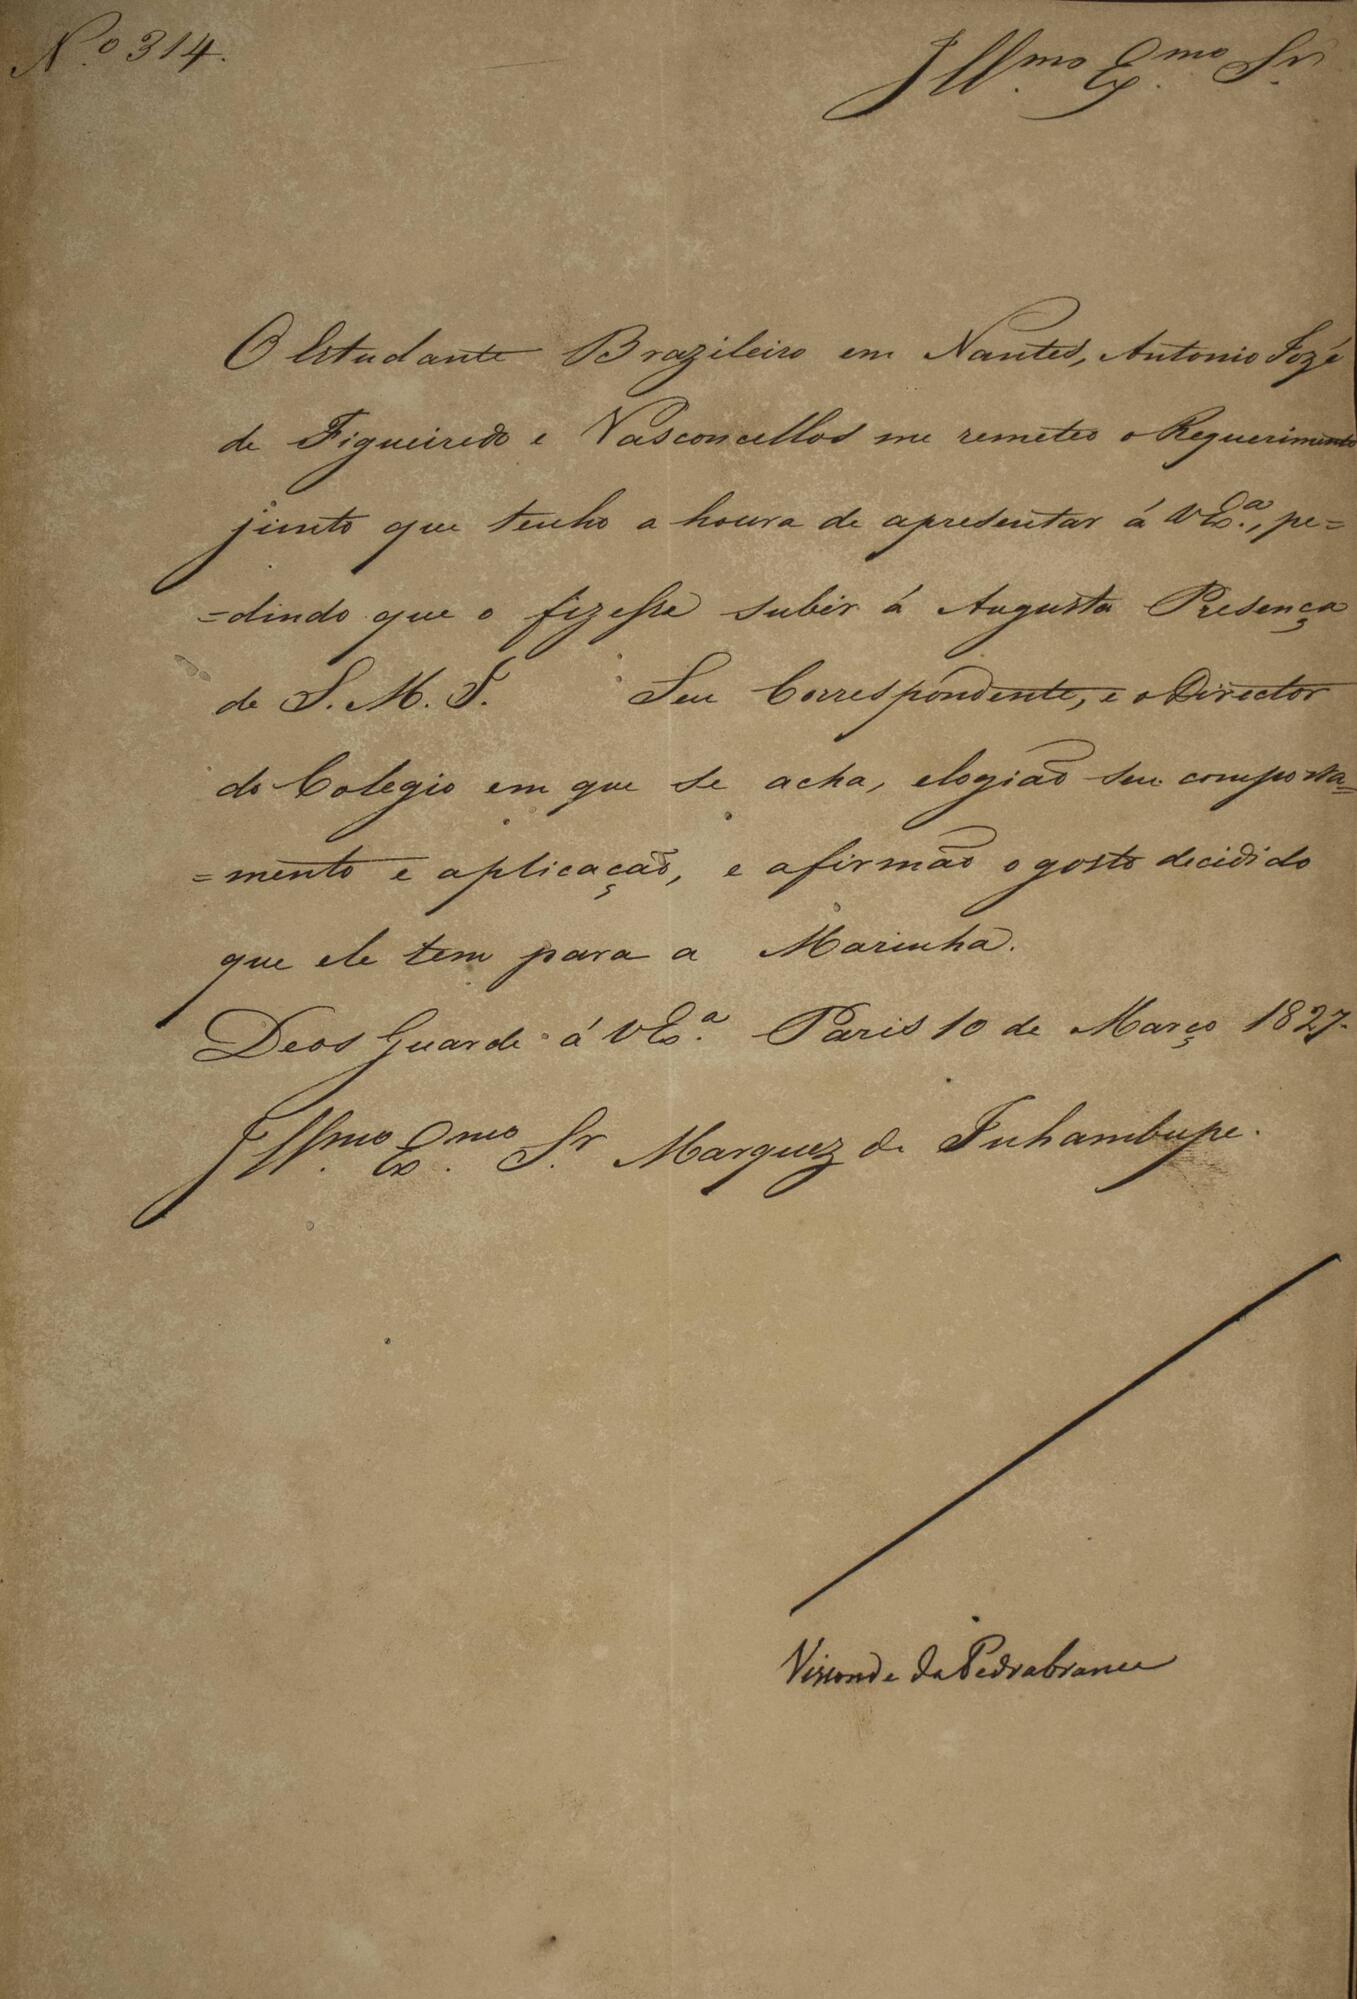 N.º 314.
Ill.mo Ex.mo Sr.
O Estudante Brazileiro em Nantes, Antonio Jozé
de Figueiredo e Vasconcellos me remeteo o Requerimento
junto que tenho a honra de apresentar á V Ex.ª, pe=
=dindo que o fizesse subir á Augusta Presença
de S. M. I. Seu Correspondente, e o Director
do Colegio em que se acha, elogião seu comporta=
=mento e aplicação, e afirmão o gosto decidido
que ele tem para a Marinha.
Deos Guarde á V Ex.ª Paris 10 de Março 1827.
Ill.mo Ex.mo Sr. Marquez de Inhambupe.
Visconde da Pedrabranca